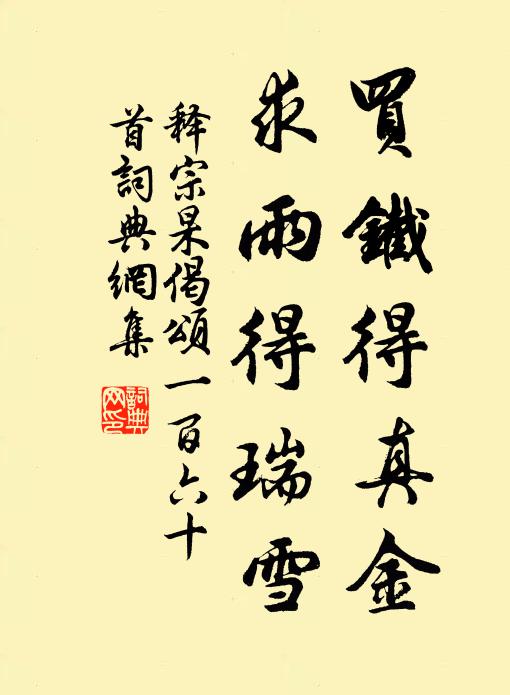 買鐵得真金
求雨得瑞雪
释宗杲偈頌一百六十
首詞典網集
詞典網印